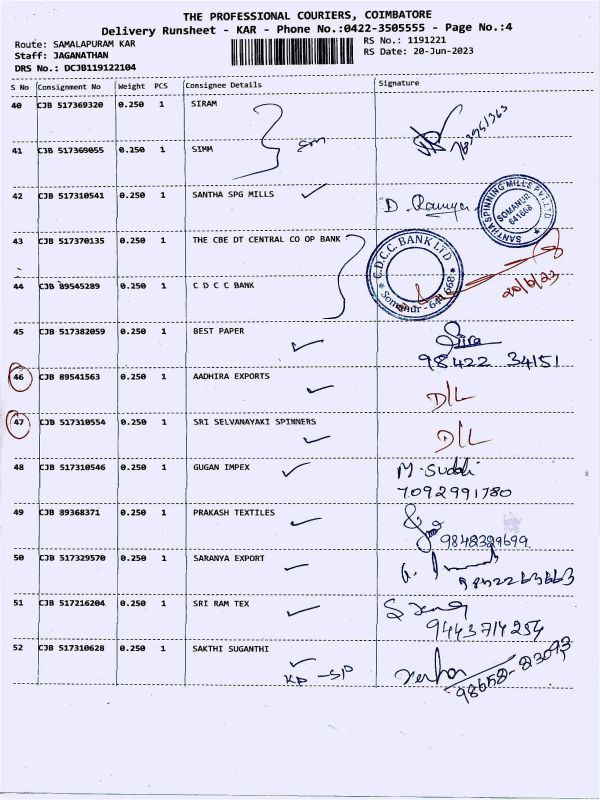 THE PROFESSIONAL COURIERS, COIMBATORE
Delivery Runsheet - KAR - Phone No.:0422-3505555 - Page No.:4
Route: SAMALAPURAM KAR
Staff: JAGANATHAN
DRS No.: DCJB119122104
RS No.: 1191221
RS Date: 20-Jun-2023
S No Consignment No Weight PCS Consignee Details Signature
40 CJB 517369320 0.250 1 SIRAM
41 CJB 517369055 0.250 1 SIMM
42 CJB 517310541 0.250 1 SANTHA SPG MILLS D. Ramya
SANTHA SPINNING MILLS PVT LTD
SOMANUR
641668
43 CJB 517370135 0.250 1 THE CBE DT CENTRAL CO OP BANK
C.D.C.C. BANK LTD
Somanur - 641 668
20/6/23
44 CJB 89545289 0.250 1 C D C C BANK
45 CJB 517382059 0.250 1 BEST PAPER
98422 34151
46 CJB 89541563 0.250 1 AADHIRA EXPORTS D/L
47 CJB 517310554 0.250 1 SRI SELVANAYAKI SPINNERS D/L
48 CJB 517310546 0.250 1 GUGAN IMPEX
7092991780
49 CJB 89368371 0.250 1 PRAKASH TEXTILES
9848329699
50 CJB 517329570 0.250 1 SARANYA EXPORT
9842263663
51 CJB 517216204 0.250 1 SRI RAM TEX
9443714254
52 CJB 517310628 0.250 1 SAKTHI SUGANTHI
KP - SP